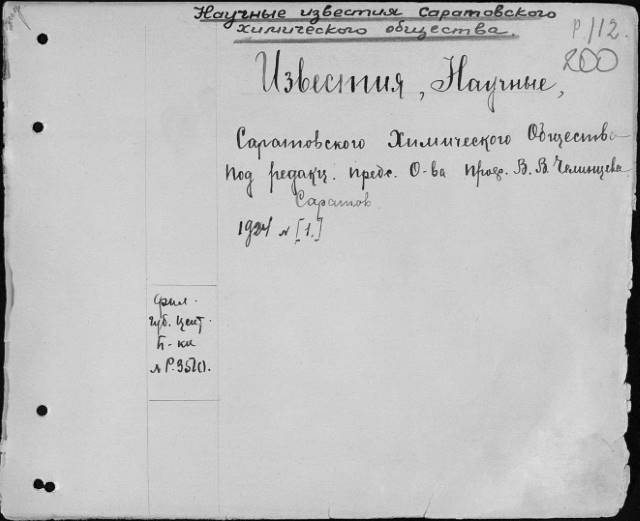 Научные известия Саратовского
химического общества.
Р./12.
200
Известия, Научные,
Саратовского Химического Общества
под редакц. предс. О-ва проф. В. В. Челинцева
Саратов
1924 № [1.]
фил.
губ. цент.
б-ки
№ Р.35